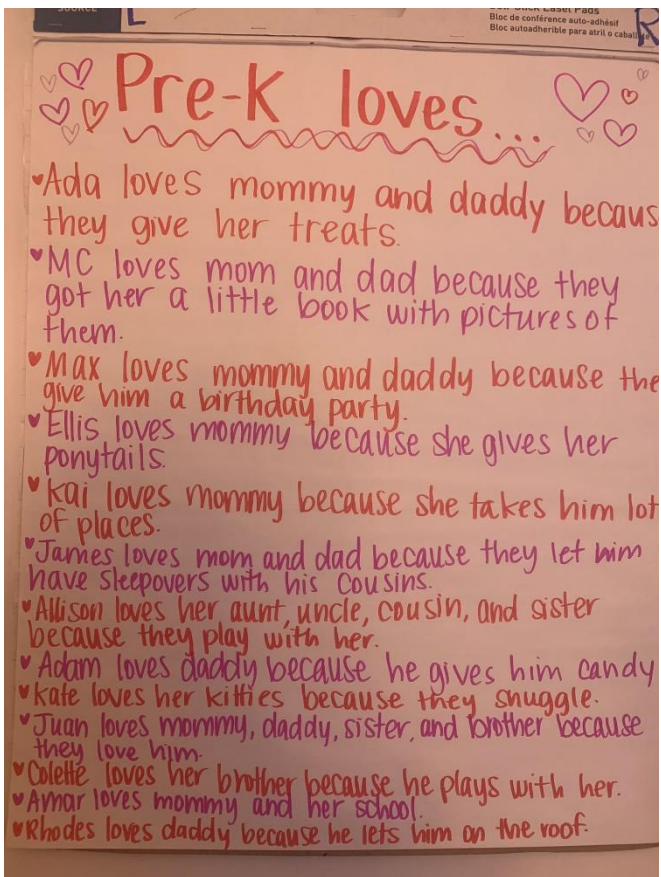 SOURCE
L
Easel Pads
Bloc de conférence auto-adhésif
Bloc autoadherible para atril o caball
R
Pre-K loves...
Ada loves mommy and daddy becaus
they give her treats.
MC loves mom and dad because they
got her a little book with pictures of
them.
Max loves mommy and daddy because the
give him a birthday party.
Ellis loves mommy because she gives her
ponytails.
Kai loves mommy because she takes him lot
of places.
James loves mom and dad because they let him
have sleepovers with his cousins.
Allison loves her aunt, uncle, cousin, and sister
because they play with her.
Adam loves daddy because he gives him candy
Kate loves her kitties because they snuggle.
Juan loves mommy, daddy, sister, and brother because
they love him.
Colette loves her brother because he plays with her.
Amar loves mommy and her school.
Rhodes loves daddy because he lets him on the roof.